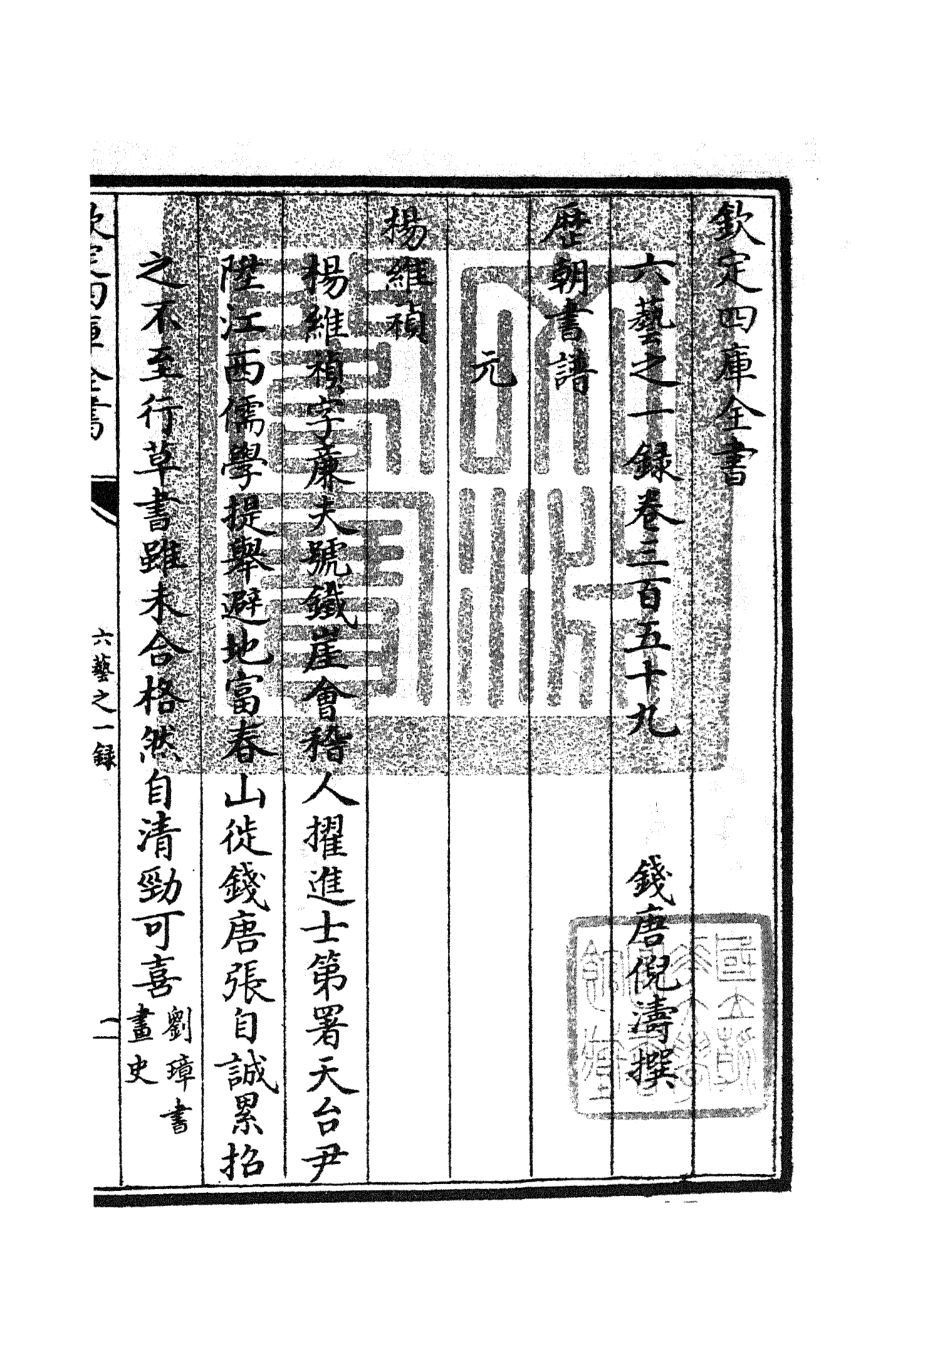 欽定四庫全書
六藝之一録卷三百五十九
錢唐倪濤撰
歷朝書譜
元
楊維禎
楊維禎字廉夫號鐵崖會稽人擢進士第署天台尹
陞江西儒學提舉避地富春山徙錢唐張自誠累招
之不至行草書雖未合格然自清勁可喜
劉璋書
畫史
欽定四庫全書
六藝之一録
一